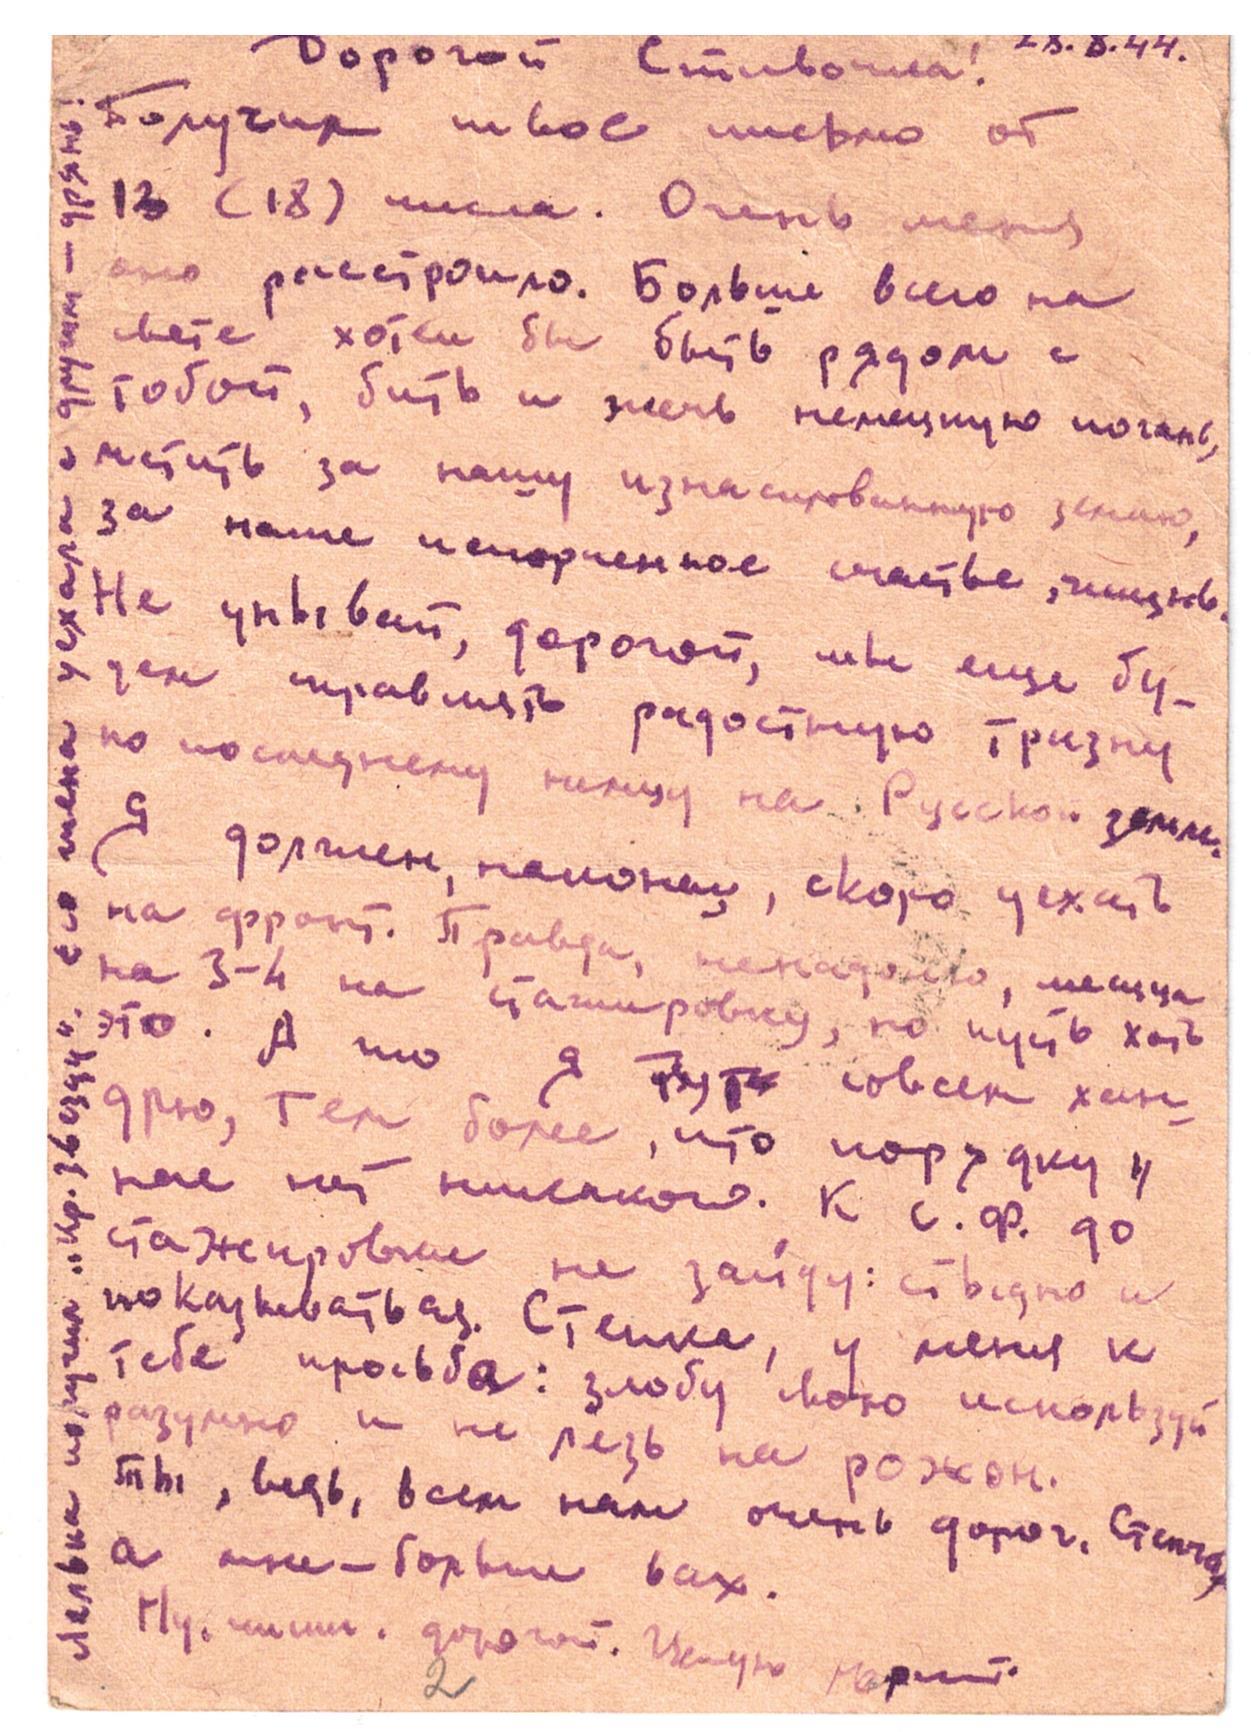 Дорогой Стивочка! 23.8.44.
Получил твое письмо от
13 (18) числа. Очень меня
оно расстроило. Больше всего на
свете хотел бы быть рядом с
тобой, бить и жечь немецкую погань,
мстить за нашу изнасилованную землю,
за наше испорченное счастье, жизнь.
Не унывай, дорогой, мы еще бу-
дем справлять радостную тризну
по последнему немцу на Русской земле.
Я должен, наконец, скоро уехать
на фронт. Правда, ненадолго, месяца
на 3-4 на стажировку, но пусть хоть
это. А то я тут совсем хан-
дрю, тем более, что порядку у
нас нет никакого. К С.Ф. до
стажировки не зайду: стыдно и
показываться. Степка, у меня к
тебе просьба: злобу свою используй
разумно и не лезь на рожон.
Ты, ведь, всем нам очень дорог, Степа,
а мне - больше всех.
Ну, пиши, дорогой. Целую
2
Левка получил „Кр. звезду". Его жена уехала с другим — дрянь!